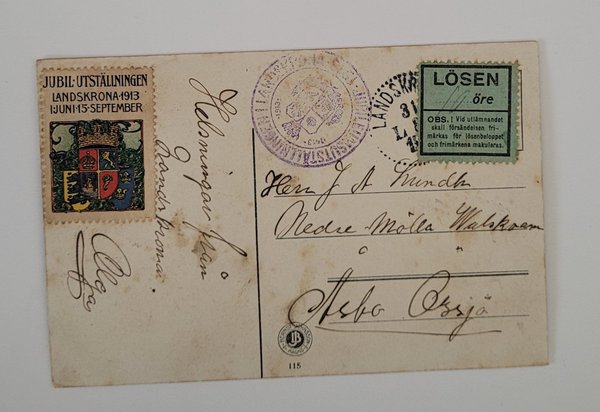 JUBIL·UTSTÄLLNINGEN
LANDSKRONA·1913
1·JUNI·15·SEPTEMBER
Helsningar från
Landskrona
Olga
LANDSKR
31
LÖSEN
öre
OBS.! Vid utlämnandet
skall försändelsen fri-
märkas för lösenbeloppet
och frimärkena makuleras.
Herr J A Lundth
Nedre Mölla Walskam
Åsbo Össjö
JB
115